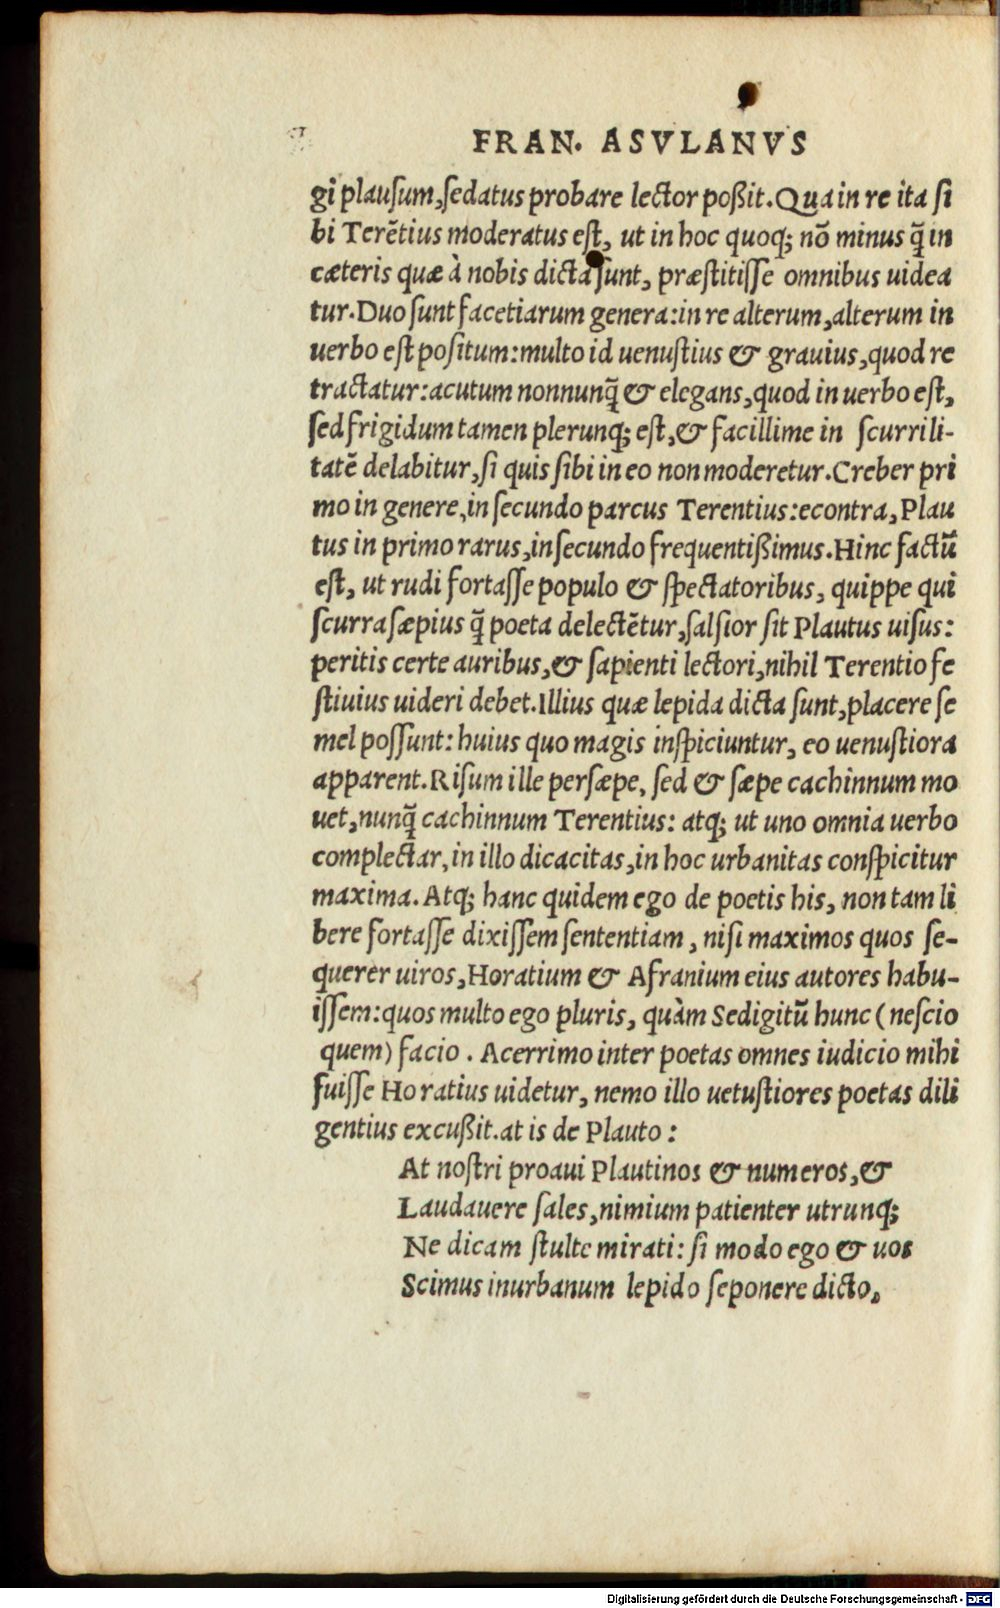 FRAN. ASVLANVS
gi plausum, sedatus probare lector poßit. Qua in re ita si
bi Terẽtius moderatus est, ut in hoc quoq; nõ minus q̃ in
cæteris quæ à nobis dicta sunt, præstitisse omnibus uidea
tur. Duo sunt facetiarum genera: in re alterum, alterum in
uerbo est positum: multo id uenustius & grauius, quod re
tractatur: acutum nonnunq̃ & elegans, quod in uerbo est,
sed frigidum tamen plerunq; est, & facillime in scurrili-
tatẽ delabitur, si quis sibi in eo non moderetur. Creber pri
mo in genere, in secundo parcus Terentius: econtra, Plau
tus in primo rarus, in secundo frequentißimus. Hinc factũ
est, ut rudi fortasse populo & spectatoribus, quippe qui
scurra sæpius q̃ poeta delectẽtur, salsior sit Plautus uisus:
peritis certe auribus, & sapienti lectori, nihil Terentio fe
stiuius uideri debet. Illius quæ lepida dicta sunt, placere se
mel possunt: huius quo magis inspiciuntur, eo uenustiora
apparent. Risum ille persæpe, sed & sæpe cachinnum mo
uet, nunq̃ cachinnum Terentius: atq; ut uno omnia uerbo
complectar, in illo dicacitas, in hoc urbanitas conspicitur
maxima. Atq; hanc quidem ego de poetis his, non tam li
bere fortasse dixissem sententiam, nisi maximos quos se-
querer uiros, Horatium & Afranium eius autores habu-
issem: quos multo ego pluris, quàm Sedigitũ hunc (nescio
quem) facio. Acerrimo inter poetas omnes iudicio mihi
fuisse Horatius uidetur, nemo illo uetustiores poetas dili
gentius excußit. at is de Plauto:
At nostri proaui Plautinos & numeros, &
Laudauere sales, nimium patienter utrunq;
Ne dicam stulte mirati: si modo ego & uos
Scimus inurbanum lepido seponere dicto.
Digitalisierung gefördert durch die Deutsche Forschungsgemeinschaft - DFG